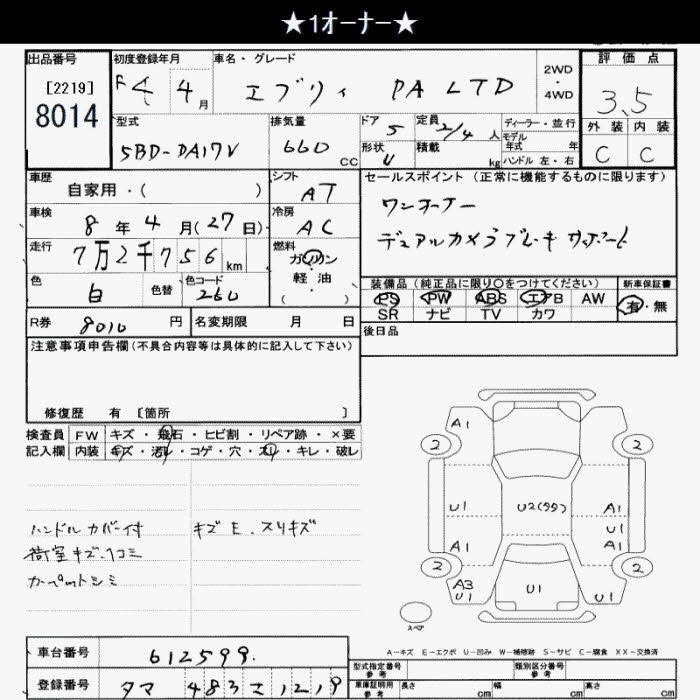 ★1オーナー★
出品番号 初度登録年月 車名・グレード 2WD・4WD 評価点
[2219]
8014
4月 エブリィ PA LTD
3.5
型式 排気量 ドア 定員 ディーラー・並行 外装 内装
5BD-DA17V 660 CC 5 2/4 人 モデル年式 年 C C
形状 U 積載 kg ハンドル 左・右
車歴 シフト セールスポイント (正常に機能するものに限ります)
自家用・( ) AT ワンオーナー
車検 冷房
8年4月(27日) AC デュアルカメラブレーキサポート
走行 燃料
7万2千756km ガソリン・軽油( )
色 白 色替 色コード 26U
装備品(純正品に限り○をつけてください) 新車保証書
PS PW ABS エアB AW 有・無
SR ナビ TV カワ
R券 8010円 名変期限 月 日 後日品
注意事項申告欄(不具合内容等は具体的に記入して下さい)
修復歴 有 [箇所 ]
検査員 FW キズ・飛石・ヒビ割・リペア跡・×要
記入欄 内装 キズ・汚れ・コゲ・穴・スレ・キレ・破レ
ハンドルカバー付 キズE.スリキズ
荷室キズ.凹コミ
カーペットシミ
A1
2 2
U1 U2(99) A1
U1
A1 A1
2 2
A3
U1 U1 U1
スペア
A-キズ E-エクボ U-凹み W-補修跡 S-サビ C-腐食 XX-交換済
車台番号 612599.
型式指定番号 参考 類別区分番号 参考
登録番号 タマ 483さ1219
車庫証明用 参考 長さ cm 幅 cm 高さ cm